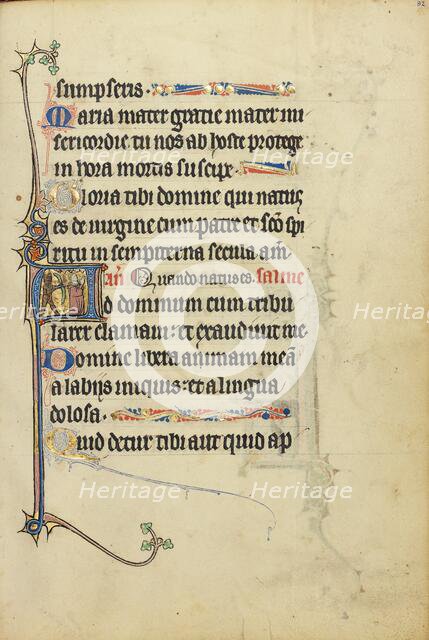 82
sumpseris.
Maria mater gratie mater mi
sericordie. tu nos ab hoste protege
in hora mortis suscipe.
Gloria tibi domine qui natus
es de uirgine cum patre et sc̄o spi
ritu in sempiterna secula am̄
an̄ Quando natus es. salme
Ad dominum cum tribu
larer clamaui: et exaudiuit me.
Domine libera animam meā
a labijs iniquis: et a lingua
dolosa.
Quid detur tibi aut quid ap
Heritage Images
Heritage Images
Heritage
Heritage
Heritage
Heritage